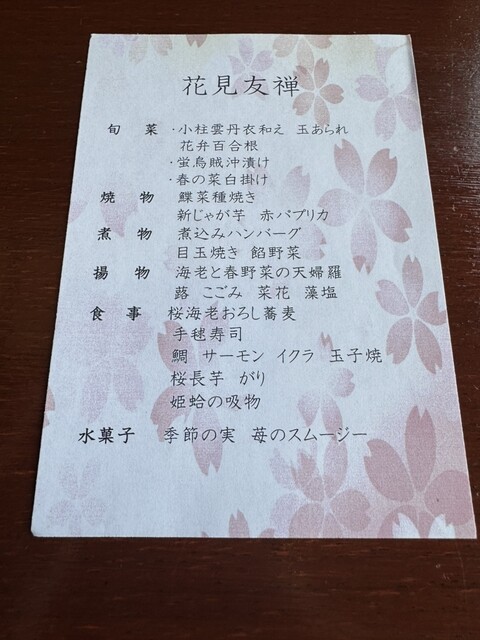 花見友禅
旬 菜 ・小柱雲丹衣和え 玉あられ
花弁百合根
・蛍烏賊沖漬け
・春の菜白掛け
焼 物 鰈菜種焼き
新じゃが芋 赤パプリカ
煮 物 煮込みハンバーグ
目玉焼き 餡野菜
揚 物 海老と春野菜の天婦羅
蕗 こごみ 菜花 藻塩
食 事 桜海老おろし蕎麦
手毬寿司
鯛 サーモン イクラ 玉子焼
桜長芋 がり
姫蛤の吸物
水菓子 季節の実 苺のスムージー